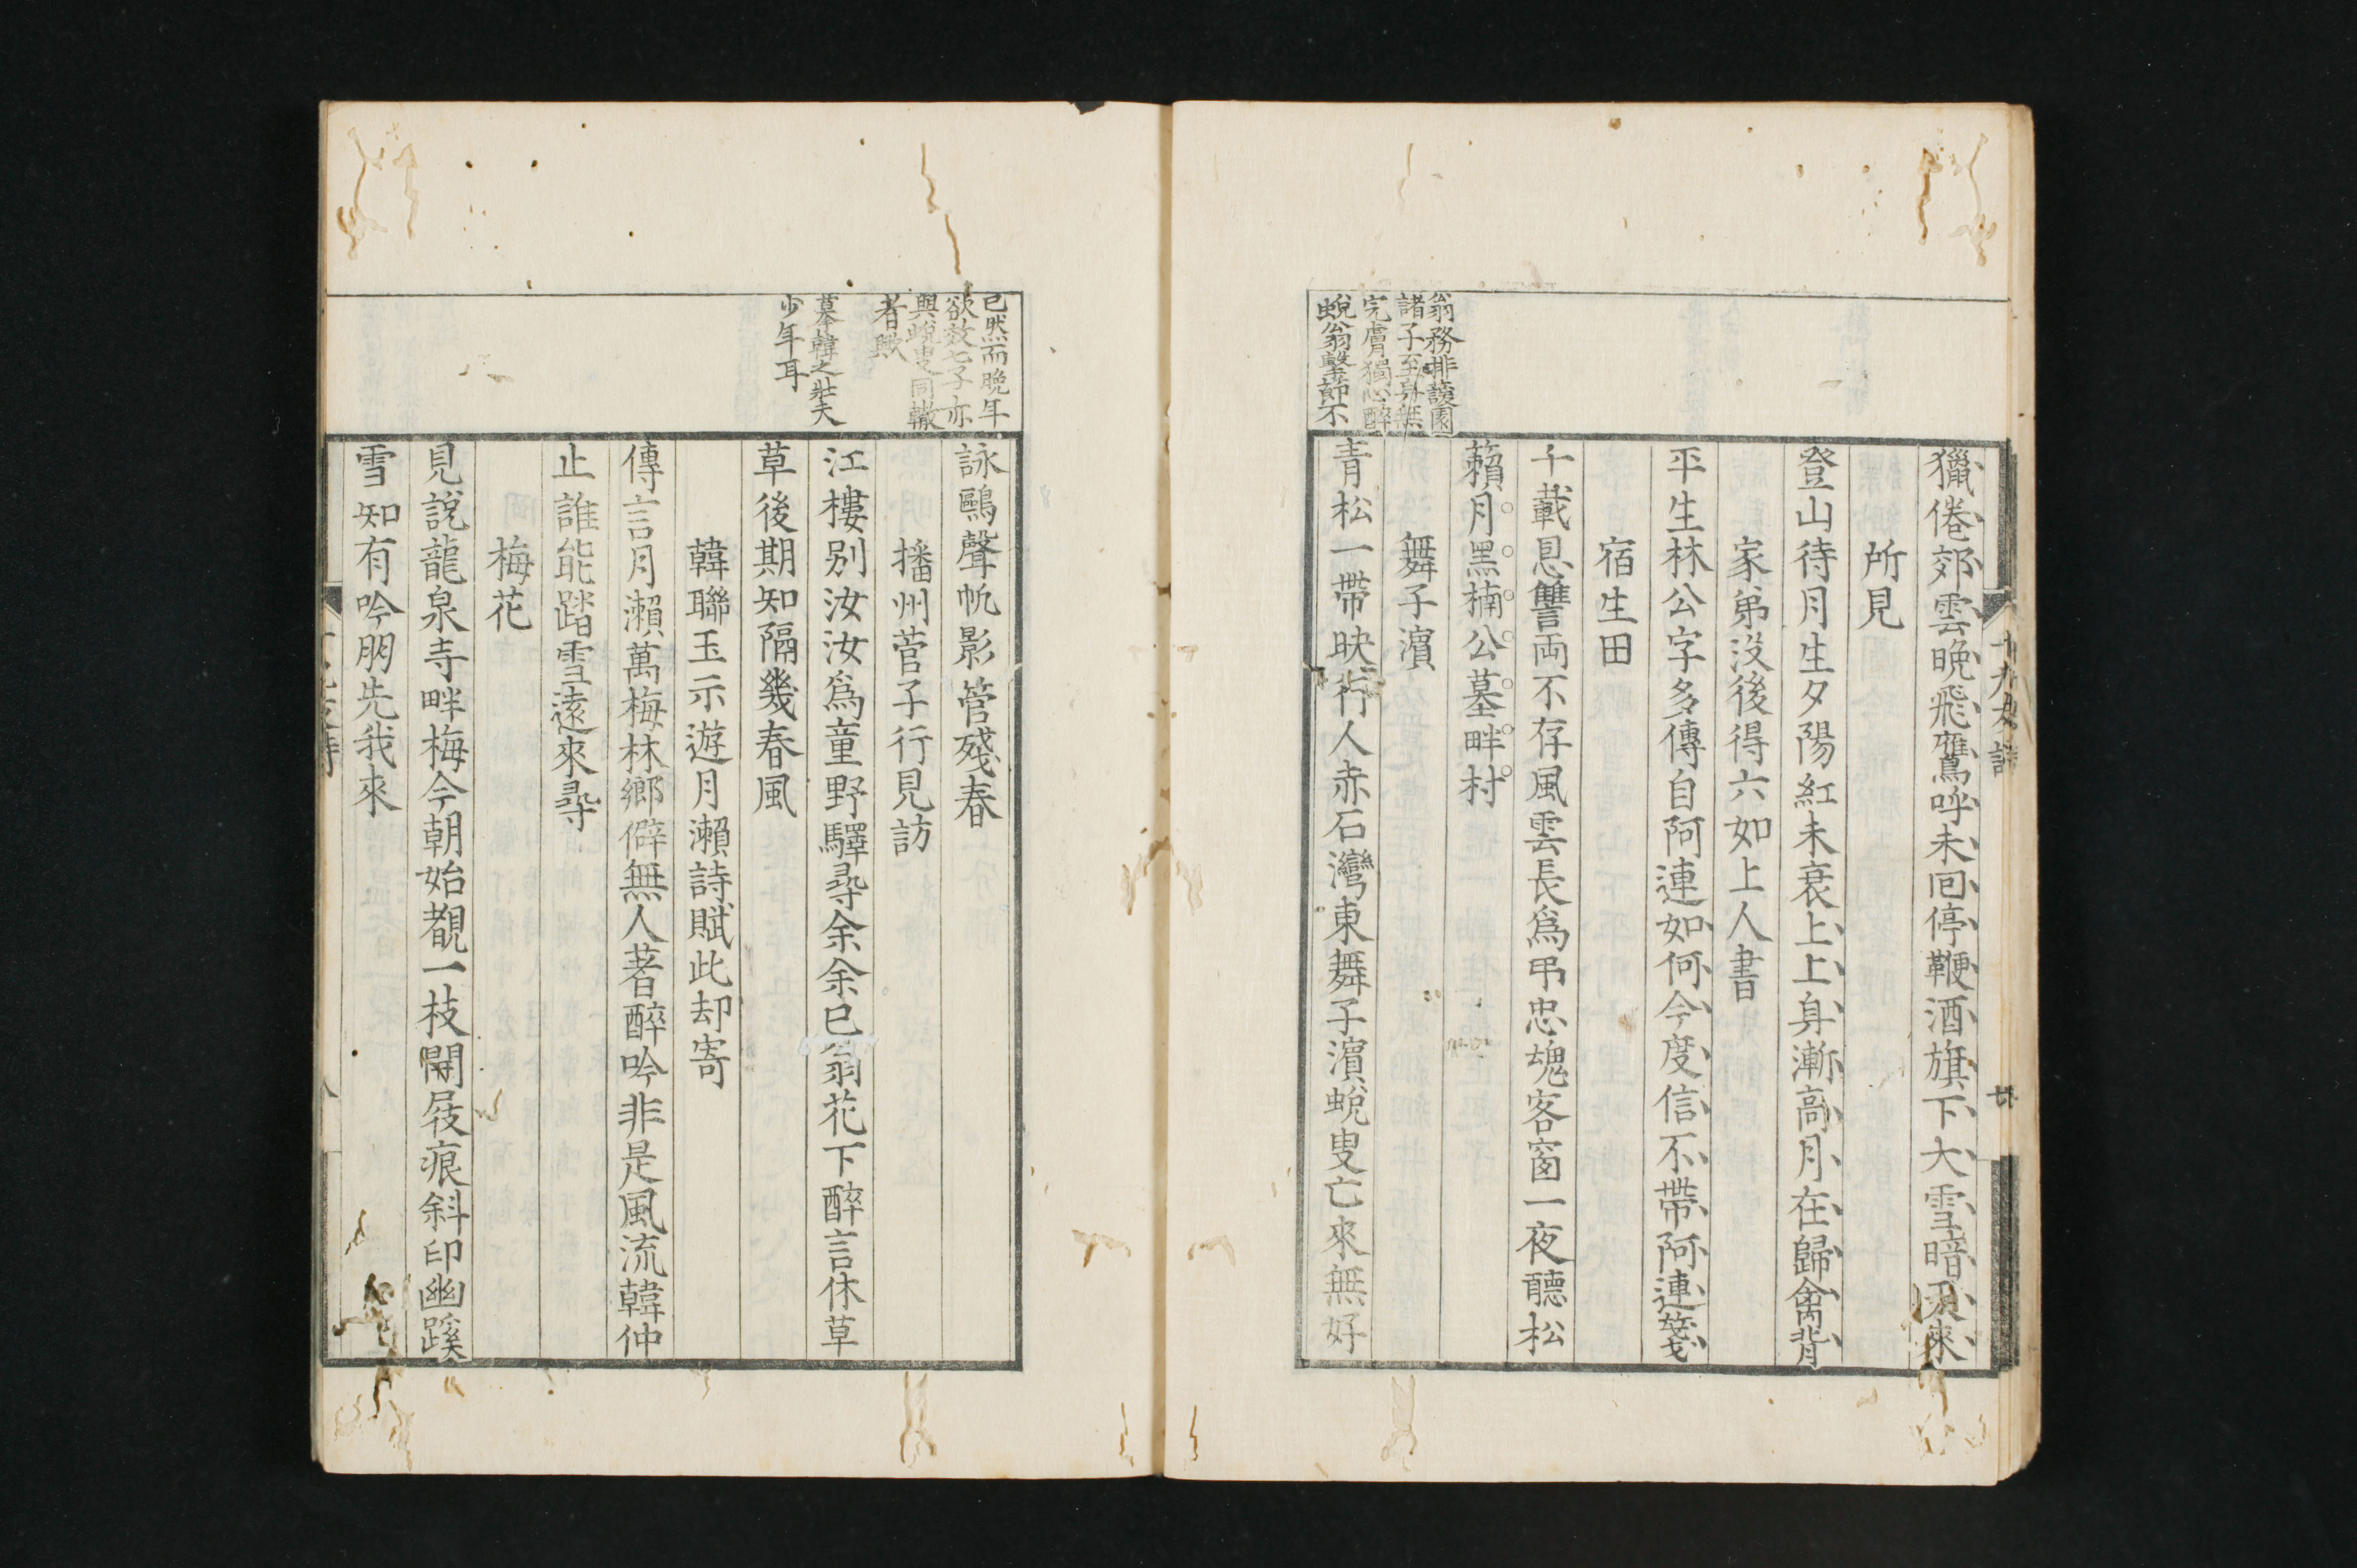 獵倦郊雲晚飛鷹呼未回停鞭酒旗下大雪暗來
所見
登山待月生夕陽紅未衰上上身漸高月在歸禽背
家弟沒後得六如上人書
平生林公字多傳自阿連如何今度信不帶阿連箋
宿生田
千載恩讐両不存風雲長爲弔忠魂客窗一夜聽松
籟月黑楠公墓畔村
舞子濱
青松一帶映行人赤石灣東舞子濱蛻叟亡來無好
翁務排蘐園
諸子至身無
完膚獨心醉
蛻翁擊節不
已然而晚年
欲效七子亦
與蛻叟同轍
者歟
慕韓之壯夫
少年耳
詠鷗聲帆影管殘春
播州菅子行見訪
江樓別汝汝爲童野驛尋余余已翁花下醉言休草
草後期知隔幾春風
韓聯玉示遊月瀨詩賦此却寄
傳言月瀨萬梅林鄉僻無人著醉吟非是風流韓仲
止誰能踏雪遠來尋
梅花
見說龍泉寺畔梅今朝始覩一枝開屐痕斜印幽蹊
雪知有吟朋先我來